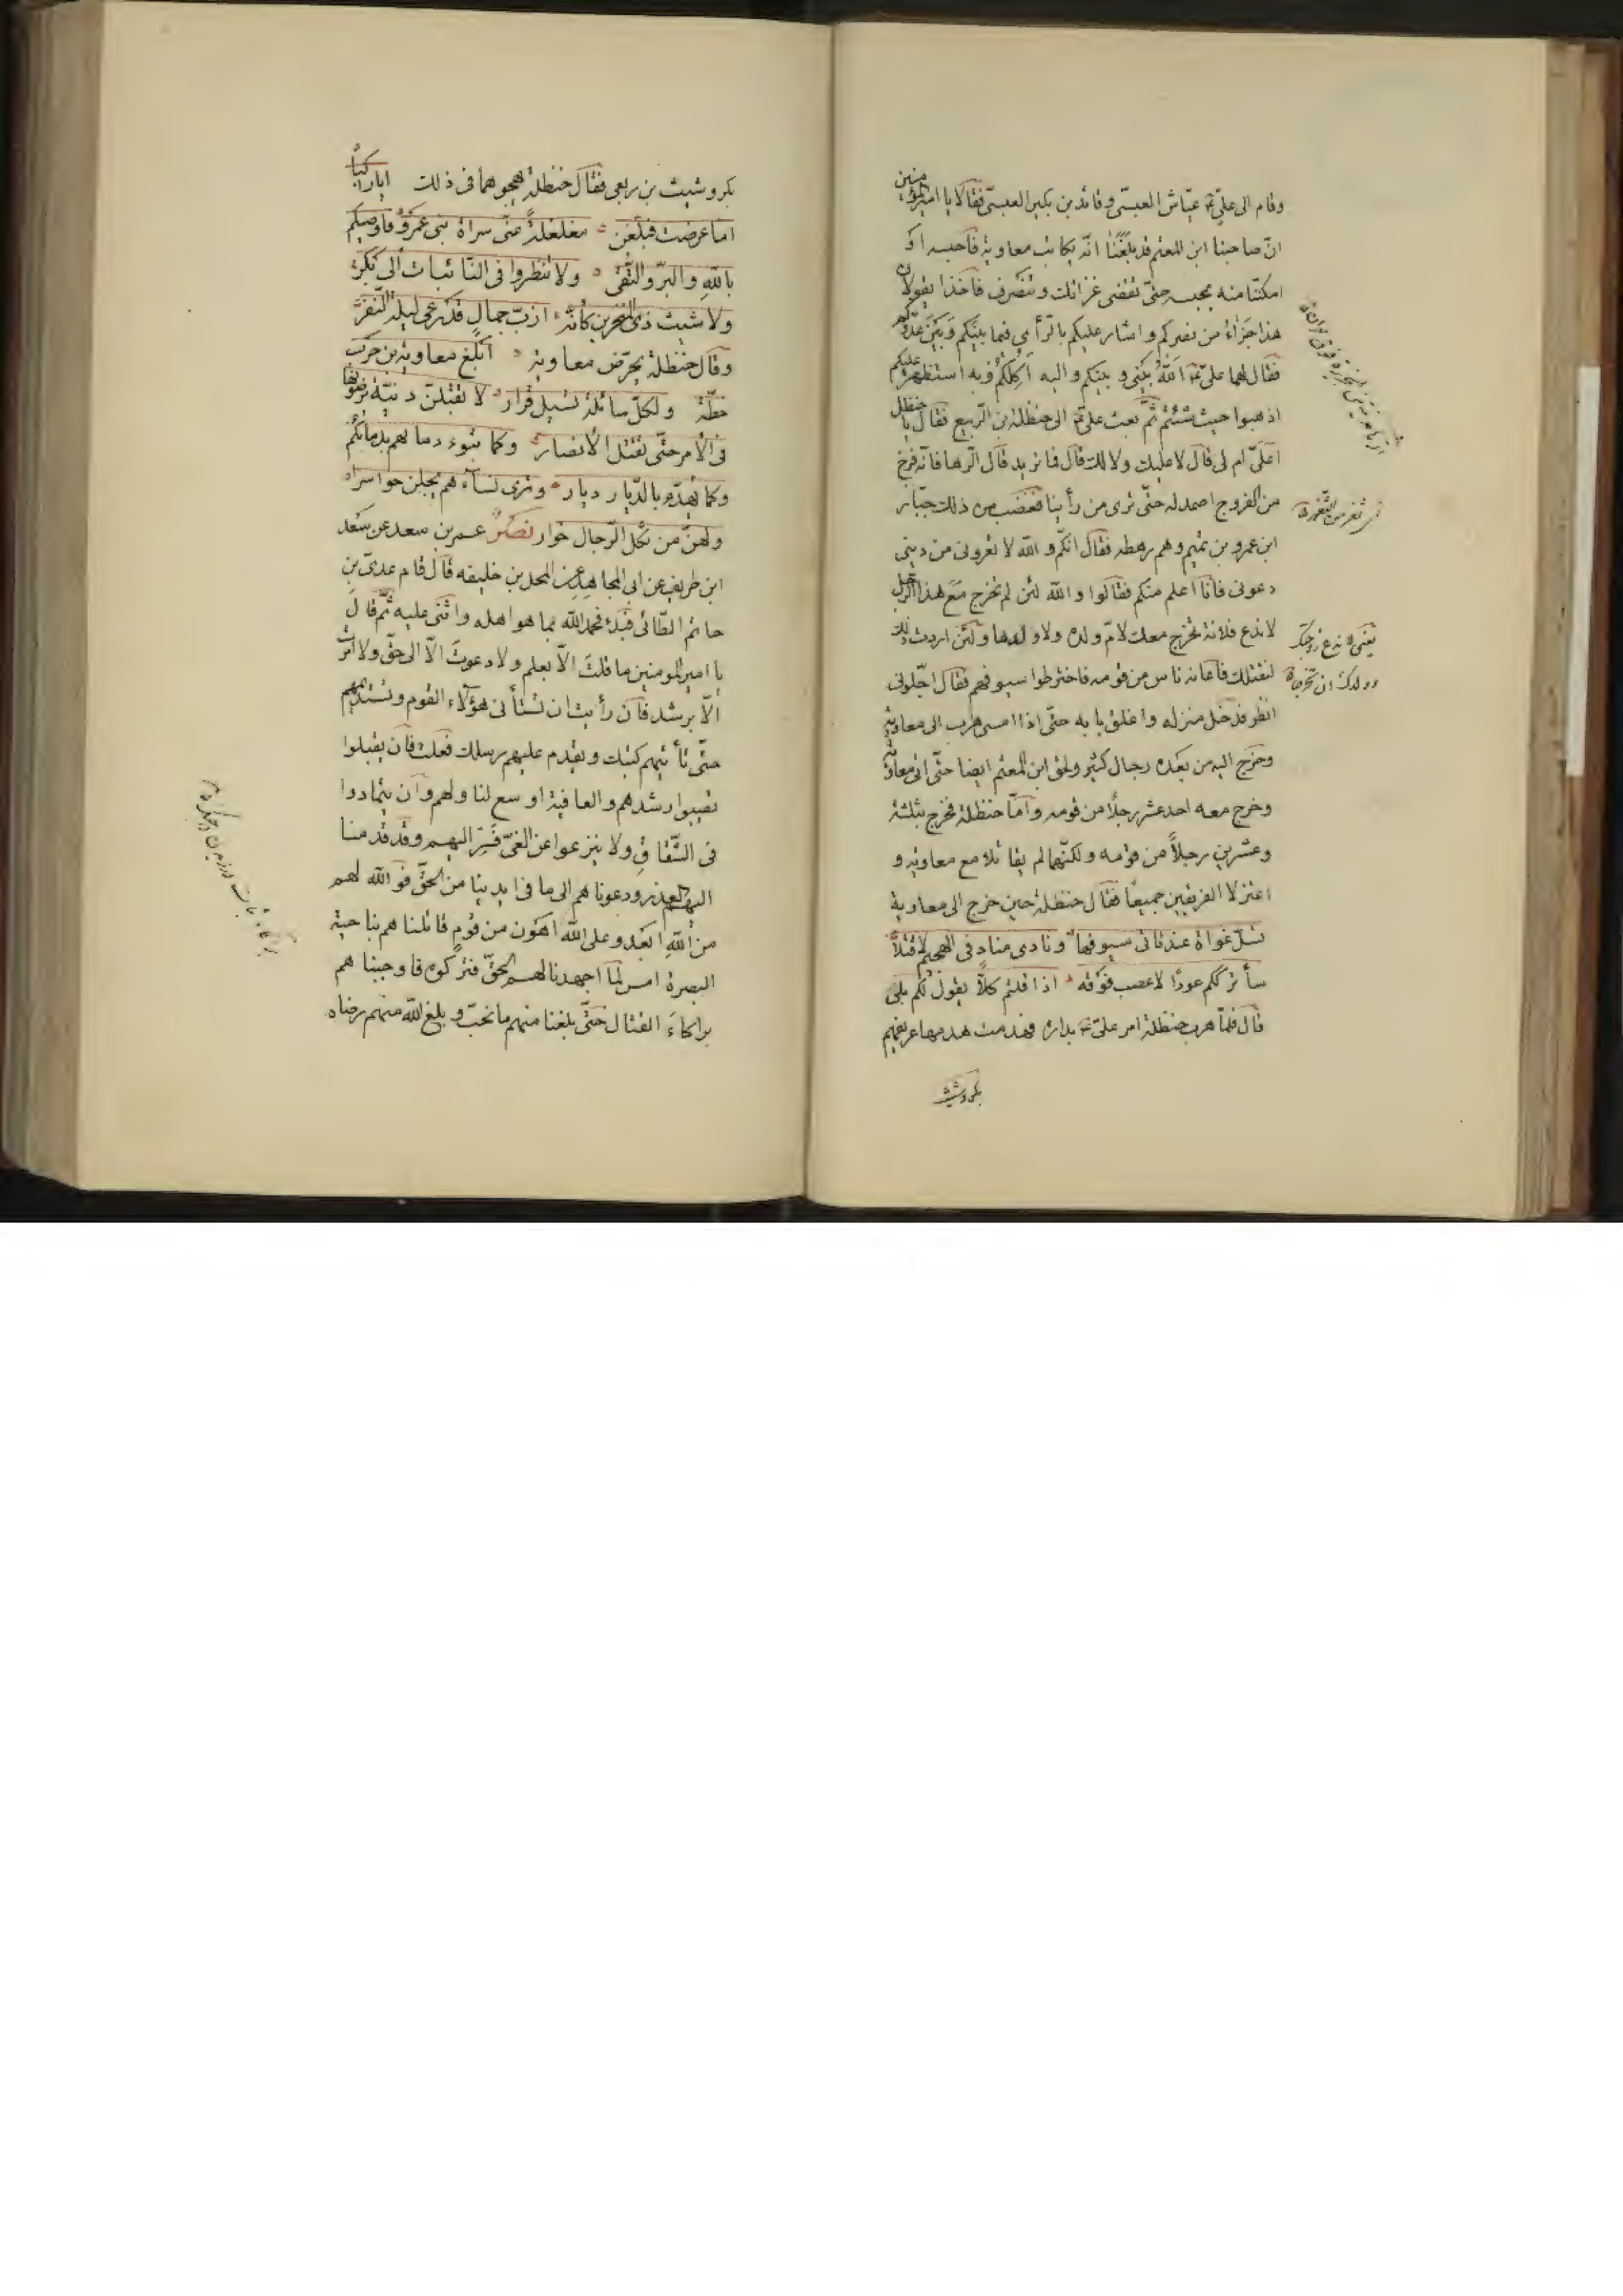 وقام الى علىّ عيّاش العبسىّ وقائد بن بكير العبسىّ فقالا يا امير المؤمنين
انّ صاحبنا ابن المعتم قد بلغنا انّه يكاتب معاوية فاحبسه او
امكنّا منه نحبسه حتّى تقضى غزاتك وتنصرف فاخذا يقولان
هذا جزاء من نصركم واشار عليكم بالرّأى فيما بينكم وبين عدوّكم
فقال لهما علىّ الله بينى وبينكم واليه اكلكم وبه استظهر عليكم
اذهبوا حيث شئتم ثمّ بعث علىّ الى حنظلة بن الرّبيع فقال يا حنظلة
اعلىّ ام لى قال لا عليك ولا لك قال فما تريد قال الرّها فانّه فرج
من الفروج اصمد له حتّى ترى من رأينا فغضب من ذلك خيار
ابن عمرو بن تميم وهم رهطه فقال انكم والله لا تغرونى من دينى
دعونى فانا اعلم منكم فقالوا والله لئن لم تخرج مع هذا الرّجل
لا ندع فلانة تخرج معك لامّ ولده ولا ولدها ولئن اردت ذلك
لنقتلنك فاعانه ناس من قومه فاخترطوا سيوفهم فقال اجّلونى
انظر فدخل منزله واغلق بابه حتّى اذا امسى هرب الى معاوية
وخرج اليه من بعده رجال كثير ولحق ابن المعتم ايضا حتّى اتى معاوية
وخرج معه احد عشر رجلاً من قومه وامّا حنظلة فخرج بثلثة
وعشرين رجلاً من قومه ولكنّهما لم يقاتلا مع معاوية و
اعتزلا الفريقين جميعاً فقال حنظلة حين خرج الى معاوية
تسلّ غواة عند بابى سيوفها ونادى مناد فى الهجيم لاقتلا
سأترككم عودًا لاصعب فرقة اذا قلتم كلاّ يقول لكم بلى
قال فلمّا هرب حنظلة امر علىّ بداره فهدمت هدمها عريفهم
بكر وشبث
يعنى لا ندع زوجتك
وولدك ان تخرجا
بكر وشبث بن ربعى فقال حنظلة يهجوهما فى ذلك ايا راكبًا
امّا عرضت فبلّغن مغلغلة عنّى سراة بنى عمرو فاوصيكم
بالله والبرّ والتّقى ولا تنظروا فى النّائبات الى بكر
ولا شبث ذى المنخرين كانّه ازبّ جمال قد رعى ليلة النّفر
وقال حنظلة يحرّض معاوية ابلغ معاوية بن حرب
خطّة ولكلّ سائلة تسيل قرار لا تقبلنّ دنيّة ترضونها
فى الامر حتّى تقتل الانصار وكما تبوء دماءهم بدمائكم
وكما تهدّم بالدّيار ديار وترى نساءهم يجلن حواسرا
ولهنّ من ثكل الرّجال خوار نصر عمر بن سعد عن سعد
ابن طريف عن ابى المجاهد عن المحل بن خليفه قال قام عدىّ بن
حاتم الطّائى فبدء فحمد الله بما هو اهله واثنى عليه ثمّ قال
يا امير المومنين ما قلت الاّ بعلم ولا دعوت الاّ الى حقّ ولا امرت
الاّ برشد فان رأيت ان تستأنى هؤلاء القوم وتستديمهم
حتّى تأتيهم كتبك ويقدم عليهم رسلك فعلت فان يقبلوا
تصيبوا رشدهم والعافية اوسع لنا ولهم وان يتمادوا
فى الشّقاق ولا ينزعوا عن الغىّ فسر اليهم وقد قدمنا
اليهم العذر ودعوناهم الى ما فى ايدينا من الحقّ فو الله لهم
من الله ابعد وعلى الله اهون من قوم قاتلنا هم بناحية
البصرة امس لمّا اجهدنا لهم الحقّ فتركوه فاوجبناهم
براكاء القتال حتّى بلغنا منهم ما نحبّ وبلغ الله منهم رضاه